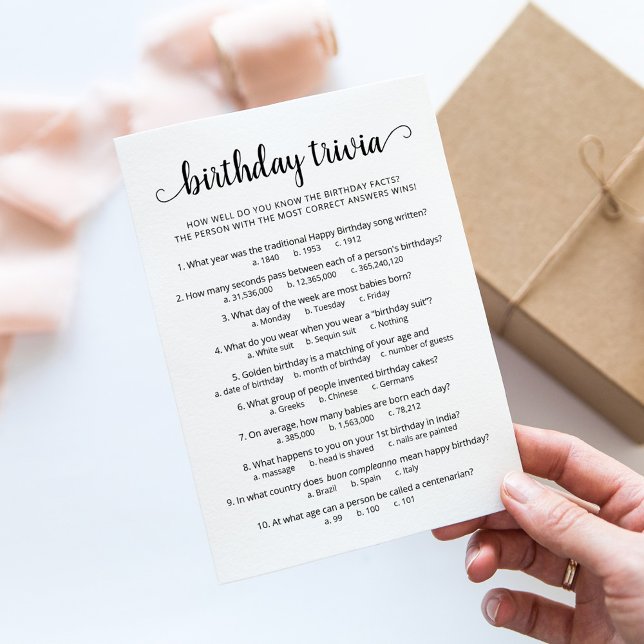 birthday trivia
HOW WELL DO YOU KNOW THE BIRTHDAY FACTS?
THE PERSON WITH THE MOST CORRECT ANSWERS WINS!
1. What year was the traditional Happy Birthday song written?
a. 1840 b. 1953 c. 1912
2. How many seconds pass between each of a person's birthdays?
a. 31,536,000 b. 12,365,000 c. 365,240,120
3. What day of the week are most babies born?
a. Monday b. Tuesday c. Friday
4. What do you wear when you wear a "birthday suit"?
a. White suit b. Sequin suit c. Nothing
5. Golden birthday is a matching of your age and
a. date of birthday b. month of birthday c. number of guests
6. What group of people invented birthday cakes?
a. Greeks b. Chinese c. Germans
7. On average, how many babies are born each day?
a. 385,000 b. 1,563,000 c. 78,212
8. What happens to you on your 1st birthday in India?
a. massage b. head is shaved c. nails are painted
9. In what country does buon compleanno mean happy birthday?
a. Brazil b. Spain c. Italy
10. At what age can a person be called a centenarian?
a. 99 b. 100 c. 101